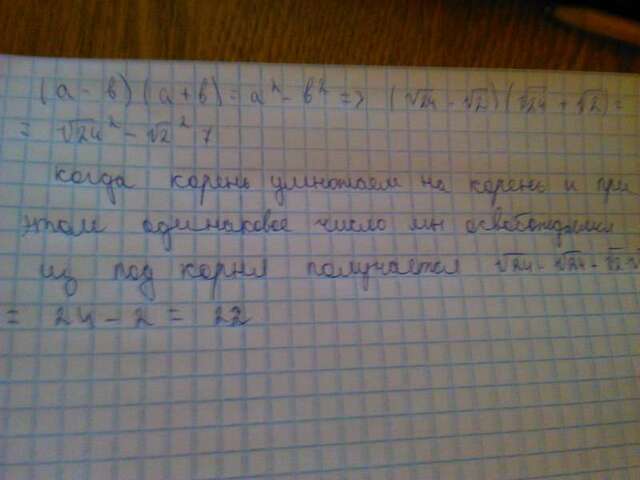 (а - в) (а + в) = а² - в² => (√24 - √2) (√24 + √2) =
= √24² - √2²
когда корень умножаем на корень и при
этом одинаковое число мы освобождаем
из под корня получается √24 · √24 - √2
= 24 - 2 = 22